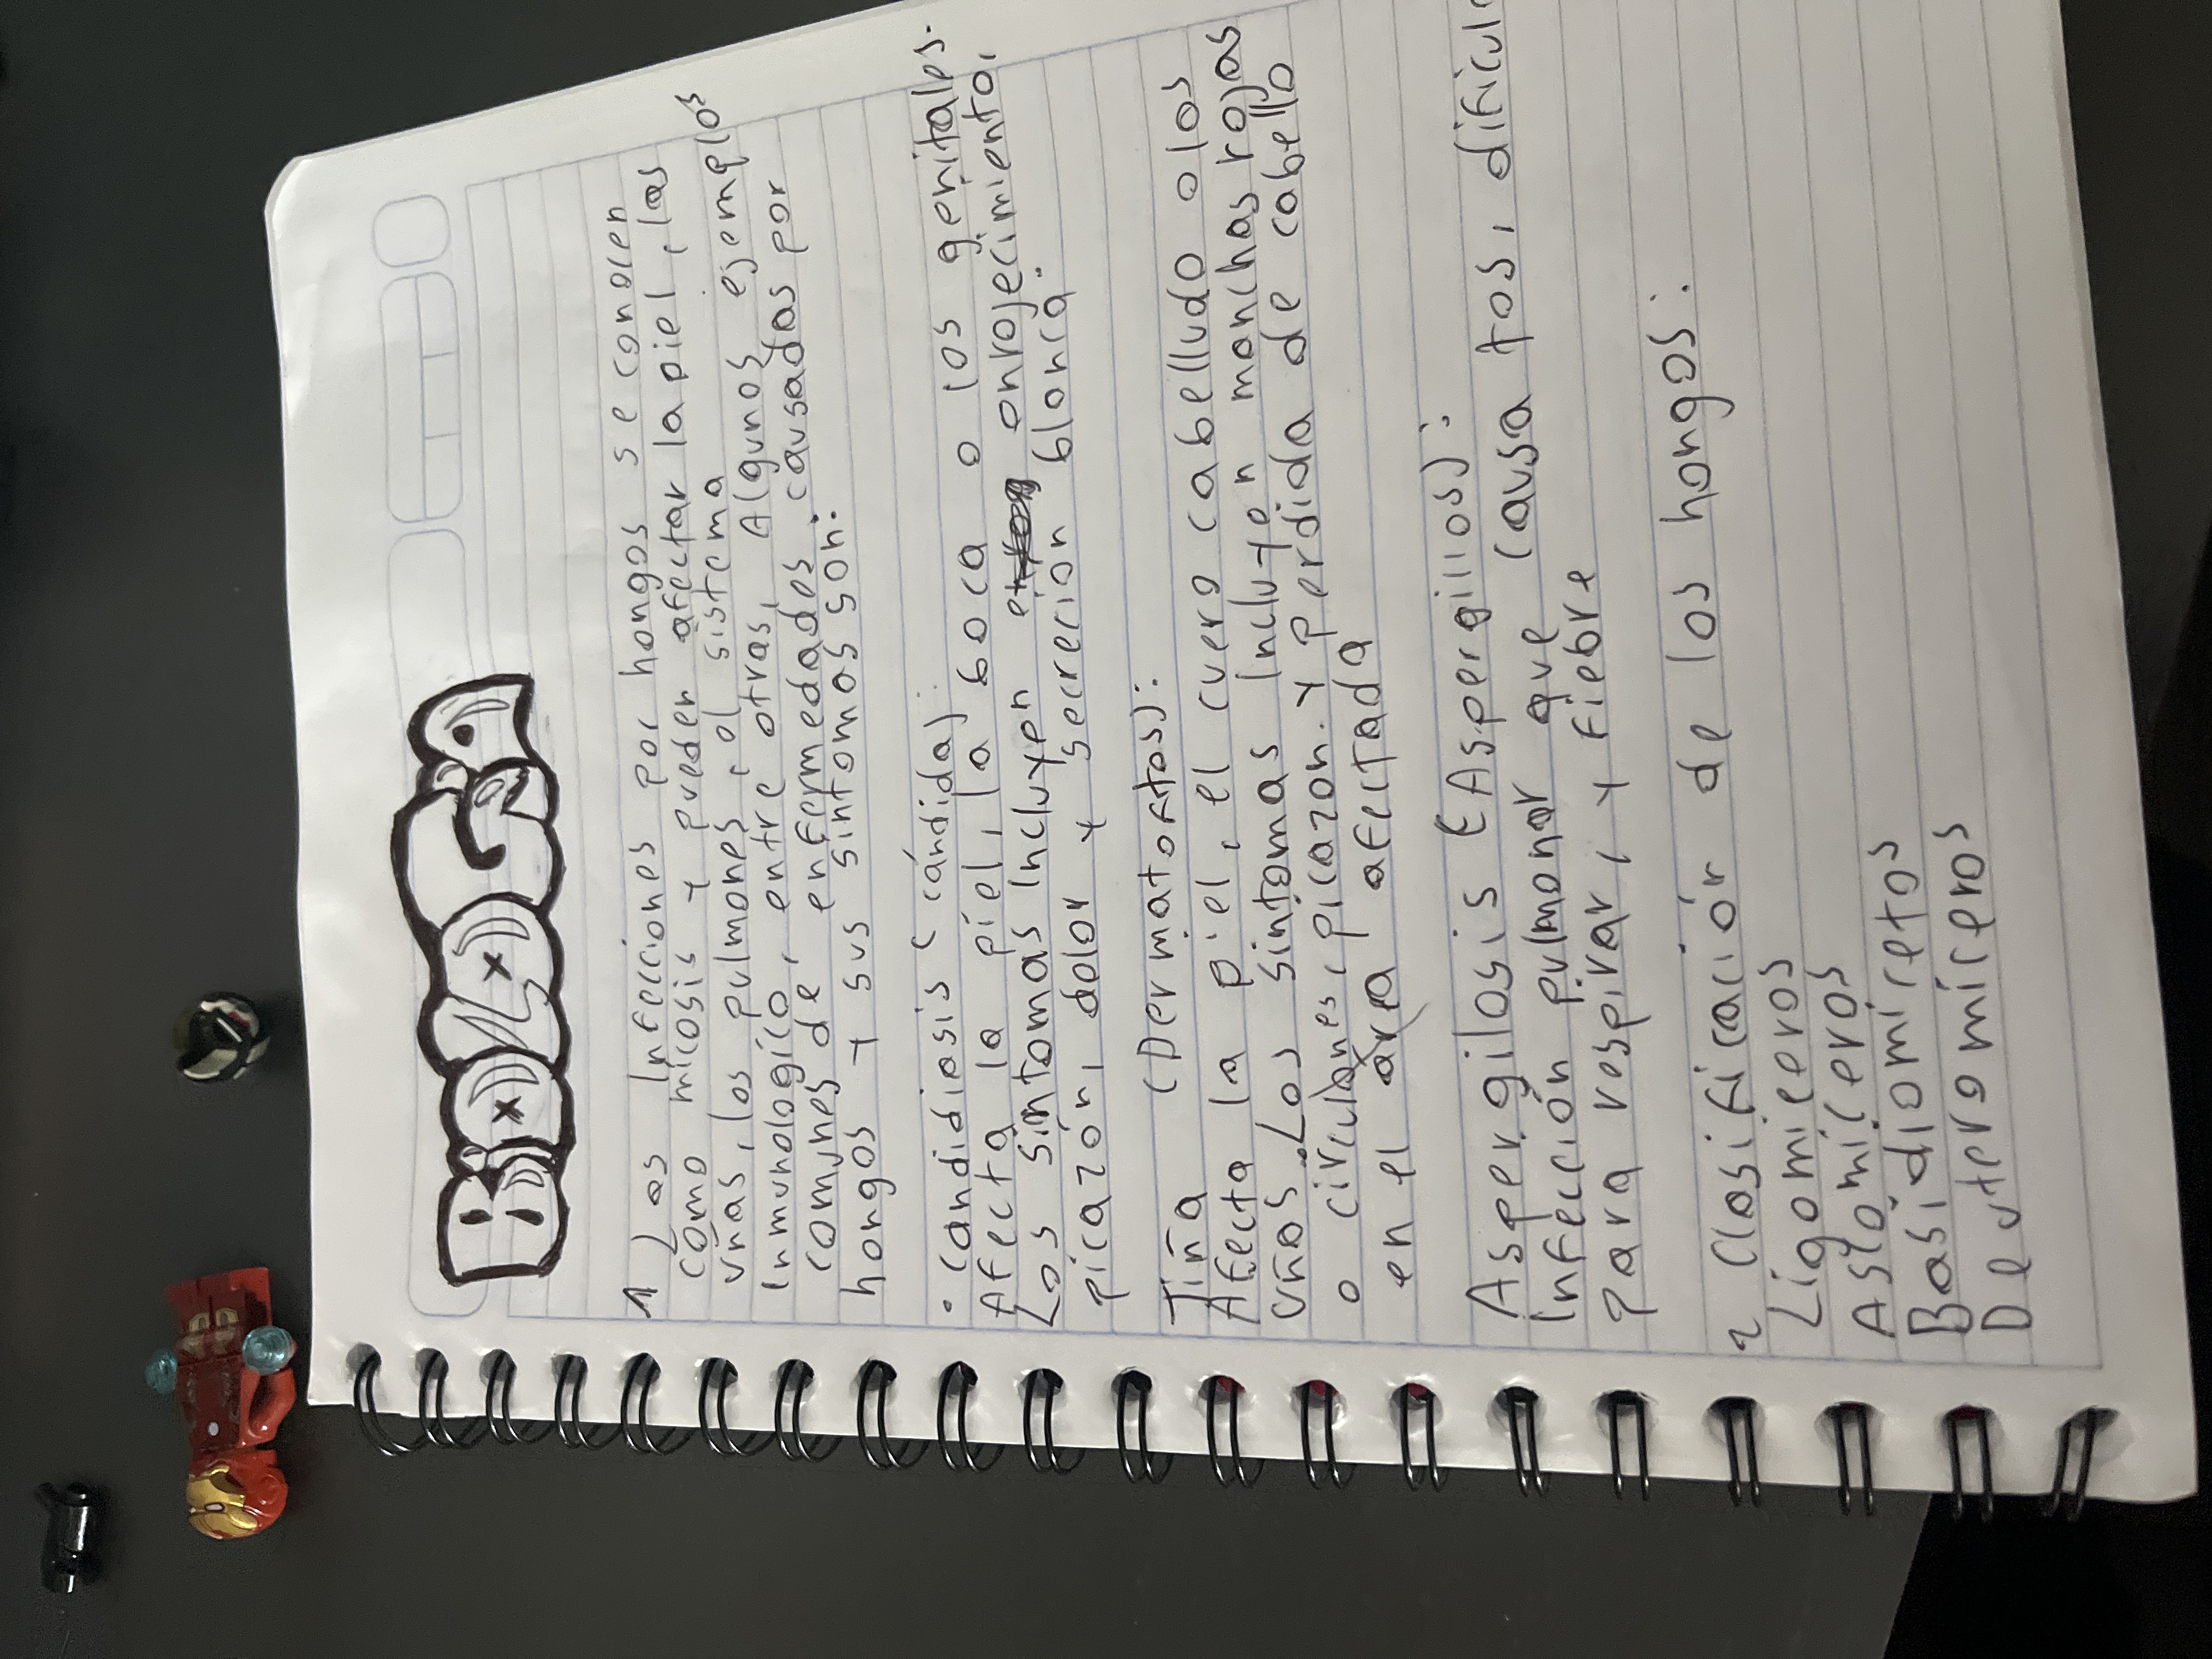 Biología
1 Las Infecciones por hongos se conocen
como micosis y pueden afectar la piel, las
uñas, los pulmones, el sistema
Inmunologíco, entre otras, Algunos ejemplos
comunes de enfermedades causadas por
hongos y sus sintomas son:
• candidiasis (cándida):
Afecta la piel, la boca o los genitales.
Los sintomas Incluyen enrojecimiento,
picazón, dolor y secreción blanca.
Tiña (Dermatofitos):
Afecta la piel, el cuero cabelludo o las
uñas. Los sintomas Incluyen manchas rojas
o circulares, picazon. y perdida de cabello
en el área afectada
Aspergilosis (Aspergillos):
Infección pulmonar que causa tos, dificul
para respirar, y fiebre
2 Clasificación de los hongos:
Ligomiceros
Aslomiceros
Basidiomicetos
Deuteromiceros